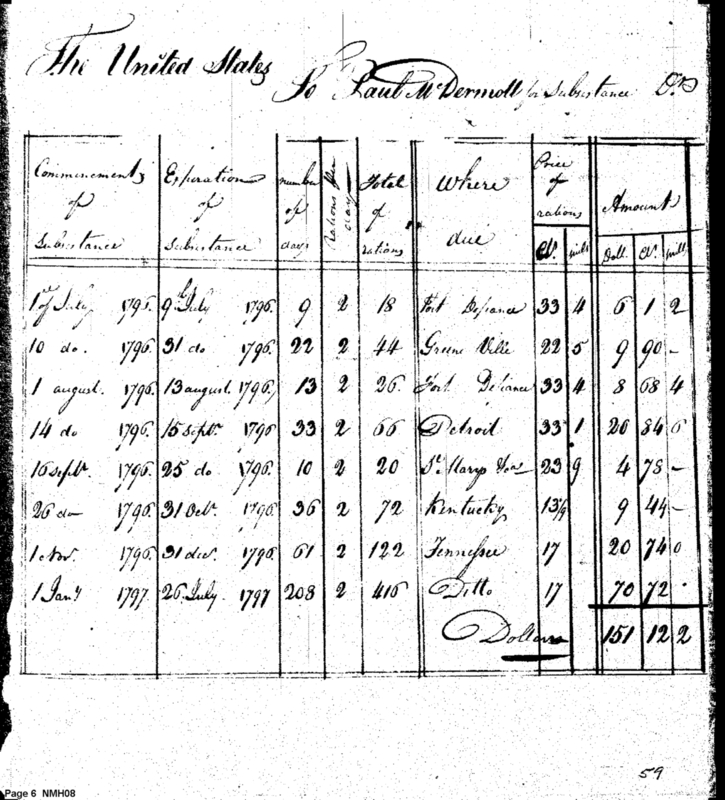 The United States
To Paul McDermott for Subsistance Drs
Commincements of Subsistance | Expiration of Subsistance | number of days | Rations per day | Total of rations | Where due | Price of rations Cts. mills | Amount Doll. Cts. mills
1st of July 1796. | 9th July 1796. | 9 | 2 | 18 | Fort Defiance | 33 4 | 6 1 2
10 do. 1796. | 31 do 1796. | 22 | 2 | 44 | Greene Ville | 22 5 | 9 90 -
1 august. 1796. | 13 august. 1796. | 13 | 2 | 26 | Fort Defiance | 33 4 | 8 68 4
14 do 1796. | 15 Septr. 1796 | 33 | 2 | 66 | Detroit | 33 1 | 20 84 6
16 Septr. 1796. | 25 do 1796. | 10 | 2 | 20 | St. Marys | 23 9 | 4 78 -
26 do 1796. | 31 Octr. 1796. | 36 | 2 | 72 | Kentucky | 9 44 -
1 Nov. 1796. | 31 decr. 1796. | 61 | 2 | 122 | Tennessee | 17 | 20 74 0
1 Jany 1797. | 26 July. 1797 | 208 | 2 | 416 | Ditto | 17 | 70 72 .
Dollars 151 12 2
59
Page 6 NMH08